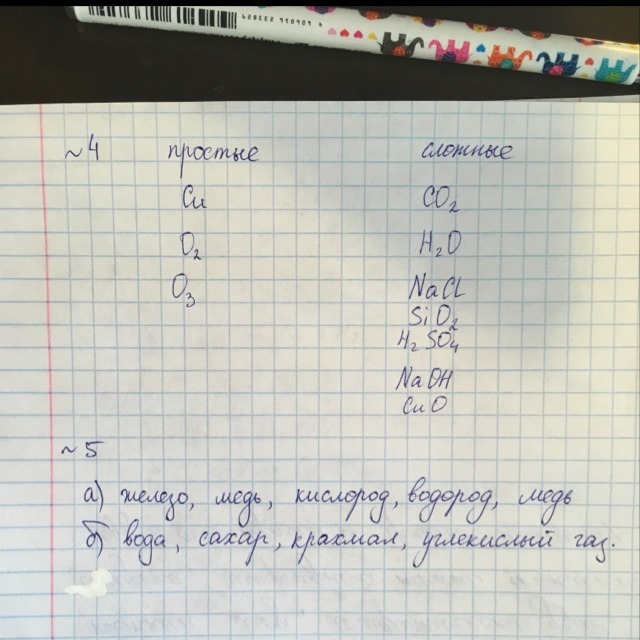 ~4 простые сложные
Cu CO₂
O₂ H₂O
O₃ NaCl
SiO₂
H₂SO₄
NaOH
CuO
~5
а) железо, медь, кислород, водород, медь
б) вода, сахар, крахмал, углекислый газ.